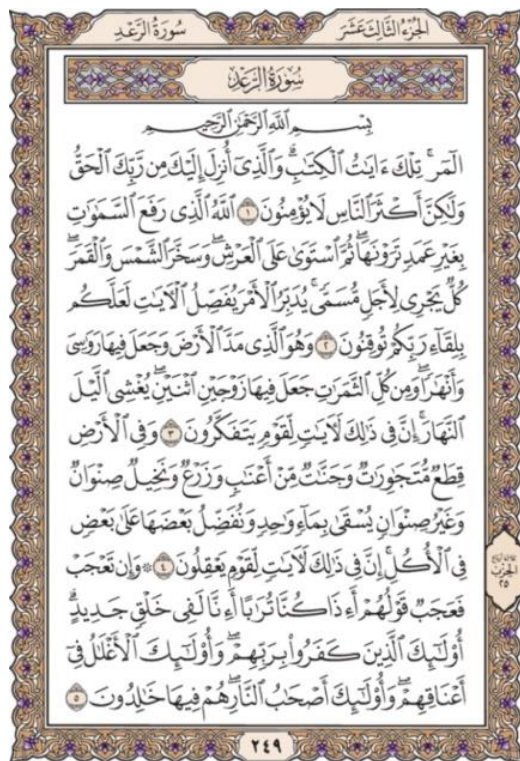 الجزء الثالث عشر سورة الرعد
سورة الرعد
بسم الله الرحمن الرحيم
الٓمٓرۚ تِلْكَ ءَايَٰتُ ٱلْكِتَٰبِۗ وَٱلَّذِىٓ أُنزِلَ إِلَيْكَ مِن رَّبِّكَ ٱلْحَقُّ
وَلَٰكِنَّ أَكْثَرَ ٱلنَّاسِ لَا يُؤْمِنُونَ ١ ٱللَّهُ ٱلَّذِى رَفَعَ ٱلسَّمَٰوَٰتِ
بِغَيْرِ عَمَدٍ تَرَوْنَهَاۖ ثُمَّ ٱسْتَوَىٰ عَلَى ٱلْعَرْشِۖ وَسَخَّرَ ٱلشَّمْسَ وَٱلْقَمَرَۖ
كُلٌّ يَجْرِى لِأَجَلٍ مُّسَمًّىۚ يُدَبِّرُ ٱلْأَمْرَ يُفَصِّلُ ٱلْءَايَٰتِ لَعَلَّكُم
بِلِقَآءِ رَبِّكُمْ تُوقِنُونَ ٢ وَهُوَ ٱلَّذِى مَدَّ ٱلْأَرْضَ وَجَعَلَ فِيهَا رَوَٰسِىَ
وَأَنْهَٰرًاۖ وَمِن كُلِّ ٱلثَّمَرَٰتِ جَعَلَ فِيهَا زَوْجَيْنِ ٱثْنَيْنِۖ يُغْشِى ٱلَّيْلَ
ٱلنَّهَارَۚ إِنَّ فِى ذَٰلِكَ لَءَايَٰتٍ لِّقَوْمٍ يَتَفَكَّرُونَ ٣ وَفِى ٱلْأَرْضِ
قِطَعٌ مُّتَجَٰوِرَٰتٌ وَجَنَّٰتٌ مِّنْ أَعْنَٰبٍ وَزَرْعٌ وَنَخِيلٌ صِنْوَانٌ
وَغَيْرُ صِنْوَانٍ يُسْقَىٰ بِمَآءٍ وَٰحِدٍ وَنُفَضِّلُ بَعْضَهَا عَلَىٰ بَعْضٍ
فِى ٱلْأُكُلِۚ إِنَّ فِى ذَٰلِكَ لَءَايَٰتٍ لِّقَوْمٍ يَعْقِلُونَ ٤ ۞ وَإِن تَعْجَبْ
فَعَجَبٌ قَوْلُهُمْ أَءِذَا كُنَّا تُرَٰبًا أَءِنَّا لَفِى خَلْقٍ جَدِيدٍۗ
أُو۟لَٰٓئِكَ ٱلَّذِينَ كَفَرُوا۟ بِرَبِّهِمْۖ وَأُو۟لَٰٓئِكَ ٱلْأَغْلَٰلُ فِىٓ
أَعْنَاقِهِمْۖ وَأُو۟لَٰٓئِكَ أَصْحَٰبُ ٱلنَّارِۖ هُمْ فِيهَا خَٰلِدُونَ ٥
الحزب
٢٥
٢٤٩